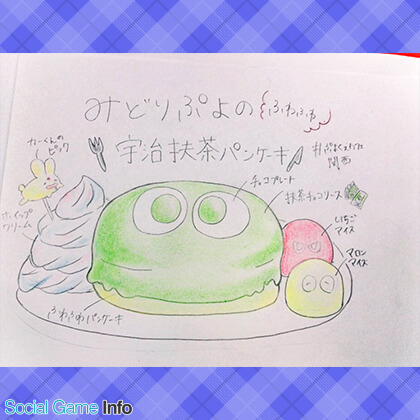 みどりぷよの
ふわふわ
宇治抹茶パンケーキ
#ぷよくえカフェ
関西
カーくんの
ピック
チョコプレート
抹茶チョコソース
ホイップ
クリーム
いちご
アイス
マロン
アイス
ふわふわパンケーキ
Social Game Info